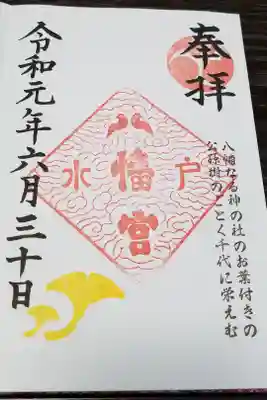 奉拝
八幡なる神の社のお葉付きの
公孫樹のごとく千代に栄えむ
水戸
八幡宮
令和元年六月三十日